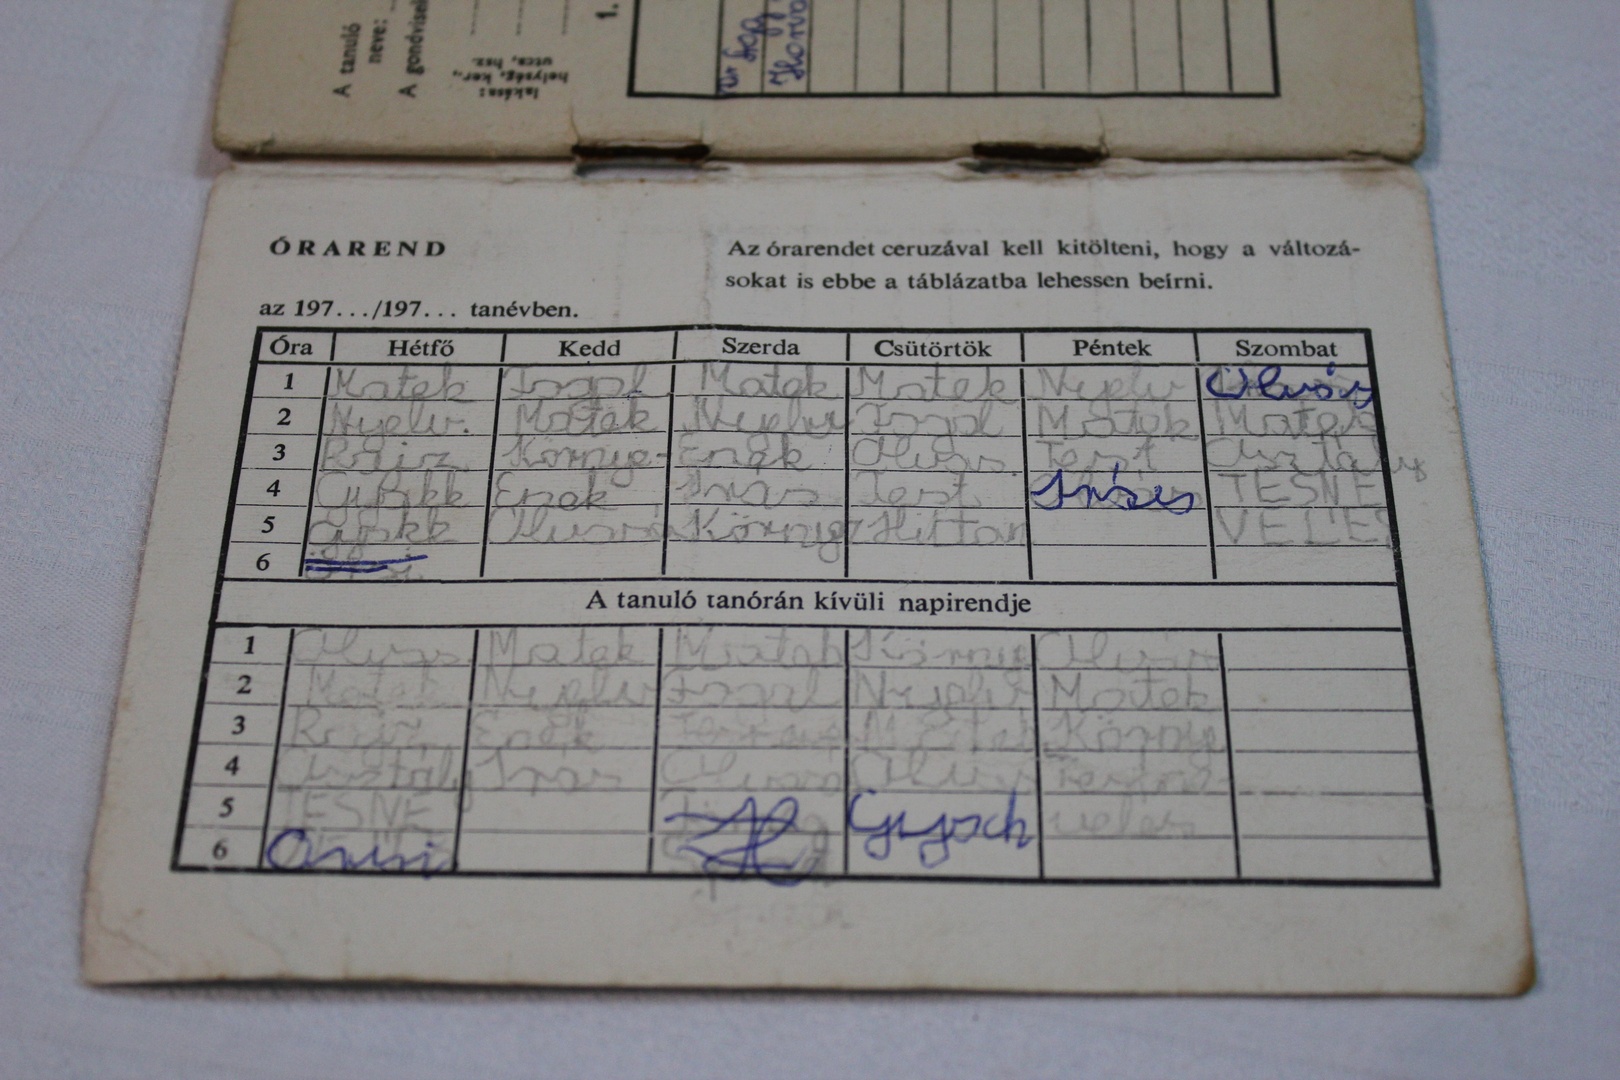 A tanuló
neve:
A gondvisel
lakása:
helység, ker.,
utca, hsz.
1.
ÓRAREND
Az órarendet ceruzával kell kitölteni, hogy a változá-
sokat is ebbe a táblázatba lehessen beírni.
az 197.../197... tanévben.
Óra Hétfő Kedd Szerda Csütörtök Péntek Szombat
1 Matek Fogal Matek Matek Nyelv Olvás
2 Nyelv. Matek Nyelv Fogal Matek Matek
3 Rajz Környe- Ének Olvas Test Osztály
4 Gyakk Ének Írás Test Írás TESNE
5 gyakk Olvasá Környez Hittan VELÉS
6
A tanuló tanórán kívüli napirendje
1 Olvas Matek Matek Környe Olvás
2 Matek Nyelv Fogal Nyelv Matek
3 Rajz Ének Matek Környe
4 Osztály Írás Olvasá Olvas Testne-
5 TESNE velés
6